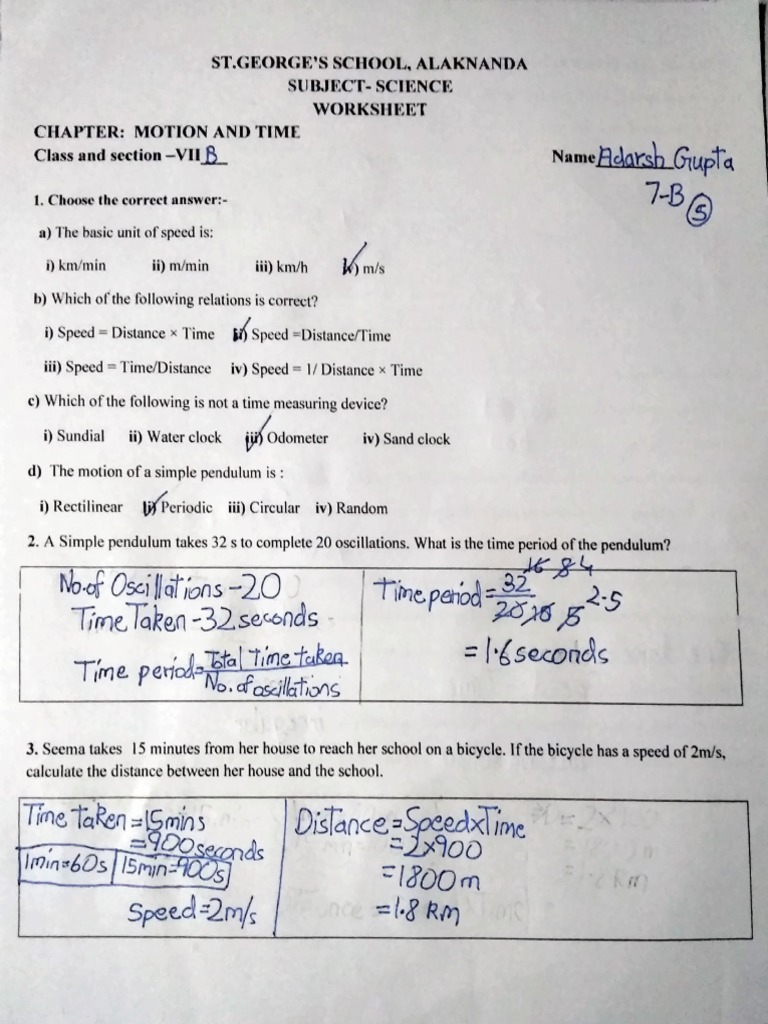 ST.GEORGE'S SCHOOL, ALAKNANDA
SUBJECT- SCIENCE
WORKSHEET
CHAPTER: MOTION AND TIME
Class and section –VII B
Name Adarsh Gupta
7-B 5
1. Choose the correct answer:-
a) The basic unit of speed is:
i) km/min ii) m/min iii) km/h iv) m/s
b) Which of the following relations is correct?
i) Speed = Distance × Time ii) Speed =Distance/Time
iii) Speed = Time/Distance iv) Speed = 1/ Distance × Time
c) Which of the following is not a time measuring device?
i) Sundial ii) Water clock iii) Odometer iv) Sand clock
d) The motion of a simple pendulum is :
i) Rectilinear ii) Periodic iii) Circular iv) Random
2. A Simple pendulum takes 32 s to complete 20 oscillations. What is the time period of the pendulum?
No.of Oscillations -20
Time Taken -32 seconds
Time period = Total Time taken
No. of oscillations
16 8 4
Time period = 32
20 10 5 2.5
= 1.6 seconds
3. Seema takes 15 minutes from her house to reach her school on a bicycle. If the bicycle has a speed of 2m/s,
calculate the distance between her house and the school.
Time taken = 15mins
= 900 seconds
1min=60s 15min=900s
Speed=2m/s
Distance = Speed x Time
= 2x900
= 1800 m
= 1.8 km